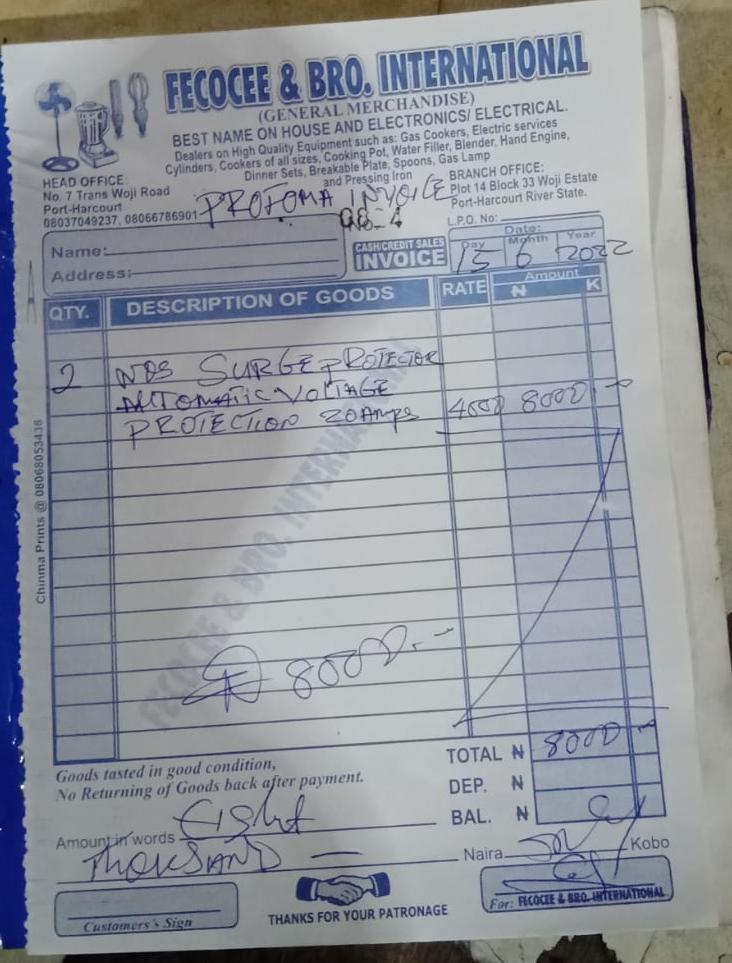 FECOCEE & BRO. INTERNATIONAL
(GENERAL MERCHANDISE)
BEST NAME ON HOUSE AND ELECTRONICS/ ELECTRICAL.
Dealers on High Quality Equipment such as: Gas Cookers, Electric services
Cylinders, Cookers of all sizes, Cooking Pot, Water Filler, Blender, Hand Engine,
Dinner Sets, Breakable Plate, Spoons, Gas Lamp
and Pressing Iron
HEAD OFFICE:
No. 7 Trans Woji Road
Port-Harcourt
08037049237, 08066786901
BRANCH OFFICE:
Plot 14 Block 33 Woji Estate
Port-Harcourt River State.
PROFOMA INVOICE
L.P.O. No:
Name:
Address:
CASH/CREDIT SALES
INVOICE
Date:
Day Month Year
15 6 2022
QTY. DESCRIPTION OF GOODS RATE Amount
₦ K
2 NOS SURGE PROTECTOR
AUTOMATIC VOLTAGE
PROTECTION 20 Amps 4000 8000
FECOCEE & BRO. INTERNATIONAL
8000
Chinma Prints @ 08068053438
Goods tasted in good condition,
No Returning of Goods back after payment.
TOTAL ₦ 8000
DEP. ₦
BAL. ₦
Amount in words Eight
THOUSAND Naira Kobo
Customers's Sign
THANKS FOR YOUR PATRONAGE
For: FECOCEE & BRO. INTERNATIONAL